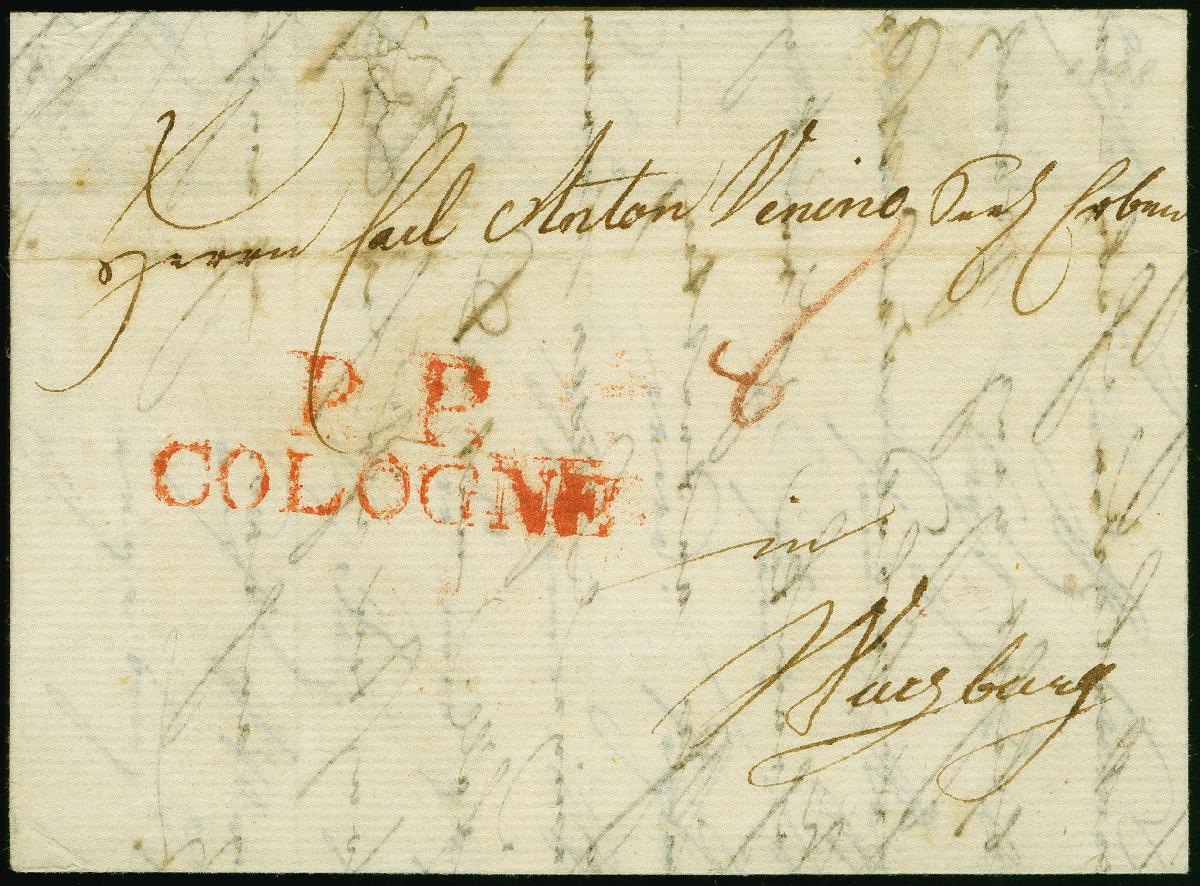 Herrn Carl Anton Venino Seel Erben
8
P. P.
COLOGNE
in
Würzburg